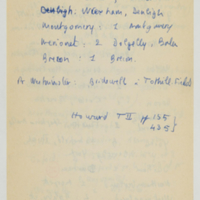 Denbigh: Wrexham, Denbigh
Montgomery: 1 Montgomery
Merioneth: 2 Dolgelly, Bala
Brecon: 1 Brecon
Westminster Bridewell - Tothill Fields
Howard T II pp 135
425